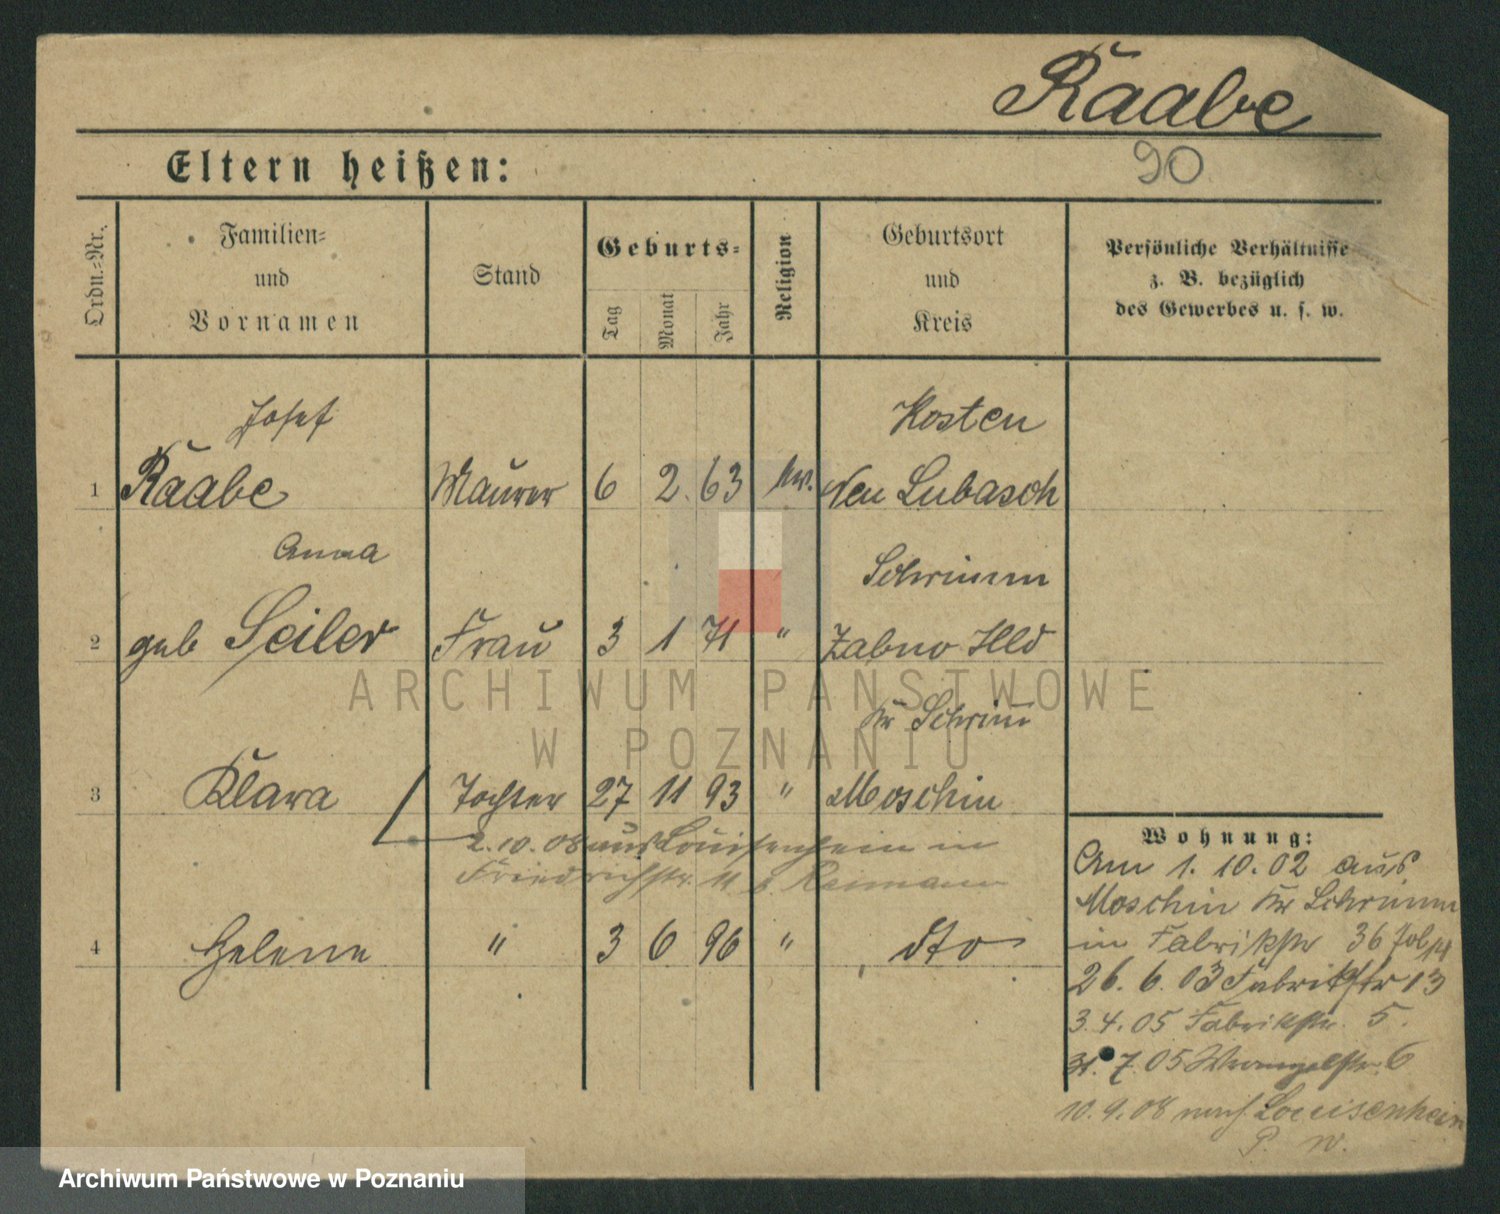 Raabe
Eltern heißen:
90
Ordn.-Nr.
Familien-
und
Vornamen
Stand
Geburts-
Tag
Monat
Jahr
Religion
Geburtsort
und
Kreis
Persönliche Verhältnisse
z. B. bezüglich
des Gewerbes u. s. w.
Josef
Kosten
1 Raabe Maurer 6 2. 63 Neu Lubasch
Anna
Schrimm
2 geb Seiler Frau 3 1 71 " Zabno Hld
Kr Schrim
3 Klara Tochter 27 11 93 " Moschin
2.10.08 aus Louisenhein in
Friedrichstr. 11 b.
4 Helene " 3 6 96 " dto
Wohnung:
Am 1. 10. 02 aus
Moschin Kr Schrimm
in Fabrikstr 36
26. 6. 03 Fabrikstr 13
3. 4. 05 Fabrikstr. 5.
31. 7. 05 Wrangelstr. 6
10. 9. 08 nach Louisenhein
P. W.
ARCHIWUM PAŃSTWOWE
W POZNANIU
Archiwum Państwowe w Poznaniu